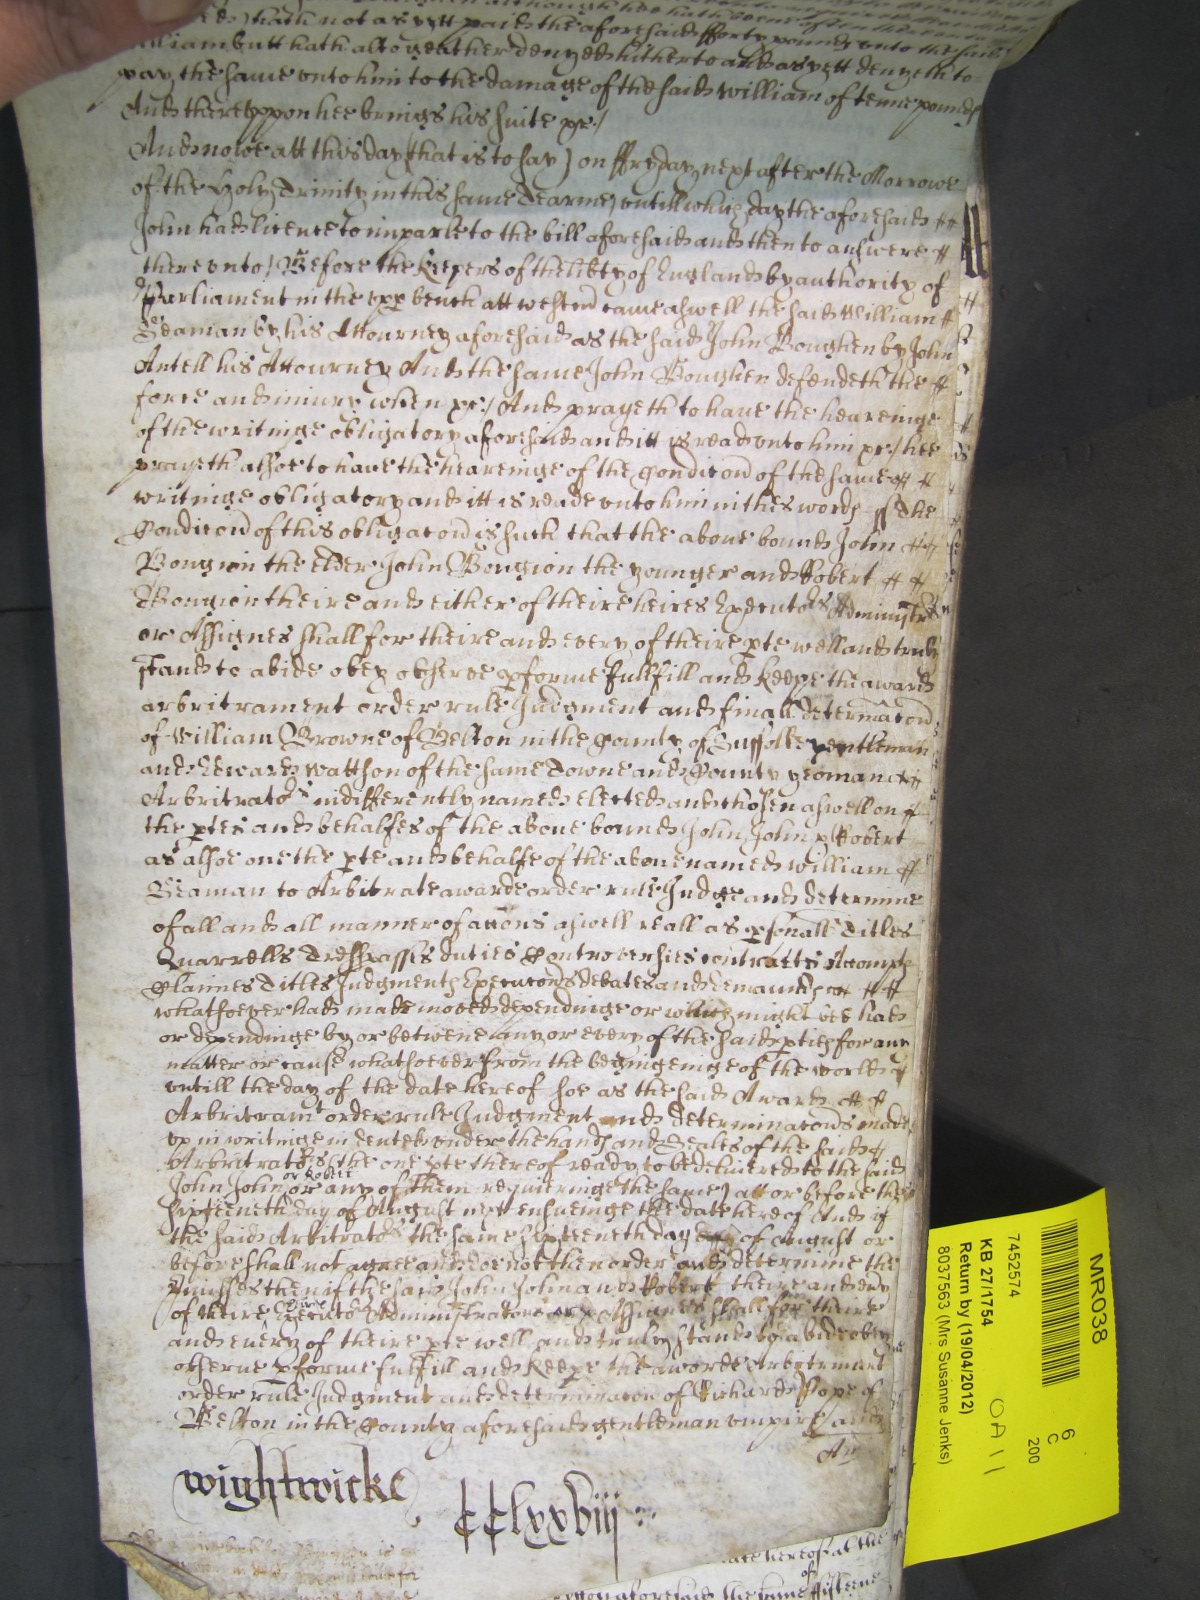 hath not as yett paid the aforesaid fforty pounds unto the said
William butt hath altogeather denyed hitherto and as yett denyeth to
pay the same unto him to the damage of the said William of tenne pounds
And thereuppon hee brings his suite &c./
And nowe att this day (that is to say) on ffryday next after the Morrowe
of the Holy Trinity in this same Tearme untill which day the aforesaid
John had licence to imparle to the bill aforesaid and then to answere
thereunto) Before the keepers of the libty of England by authority of
Parliament in the upp bench att westm came aswell the said William
Seaman by his Attourney aforesaid as the said John Boughen by John
Antell his Attourney And the same John Boughen defendeth the
force and iniury when &c./ And prayeth to have the heareinge
of the writinge obligatory aforesaid and itt is read unto him &c./ hee
prayeth alsoe to have the heareinge of the Condicon of the same
writinge obligatory and itt is reade unto him in thes words ss The
Condicon of this obligacon is such that the above bound John
Bougion the elder John Bougion the younger and Robert
Bougion theire and either of theire heires Executors Administr
or Assignes shall for theire and every of theire pte well and truly
stand to abide obey observe pforme fullfill and keepe the award
arbritrament order rule Judgment and finall determinacon
of William Browne of Belton in the County of Suffolke gentleman
and Edward Wattson of the same Towne and County yeoman
Arbritrators indifferently named elected and chosen aswell on
the ptes and behalfes of the above bound John, John & Robert
as alsoe one the pte and behalfe of the above named William
Seaman to Arbitrate awarde order rule Judge and determine
of all and all manner of accons aswell reall as psonall Titles
Quarrells Trespasses duties Controversies contracts Accompts
Claimes Titles Judgments Execucons debates and demands
whatsoever had made moved dependinge or which might bee had
or dependinge by or betweene any or every of the said pties for any
matter or cause whatsoever from the begingeinge of the world
untill the day of the date hereof soe as the said Award
Arbritramt order rule Judgment and determinacons made
up in writinge indented under the hands and Seales of the said
Arbritrators (the one pte thereof ready to be delivered to the said
John John or Robert or any of them requieringe the same) att or before the
sixteenth day of August next ensueinge the date hereof And if
the said Arbitrators the same sixteenth day of August or
before shall not agree and doe not then order and determine the
pmisses then if the said John John and Robert theire and evry
of theire heires Executors Administrators or Assignes shall for theire
and every of theire pte well and truly stand to abide obey
observe pforme fulfill and keepe the awarde Arbitremt
order rule Judgment and determinacon of Richard Pope of
Belton in the County aforesaid gentleman umpire and
wightwicke
CClxxviij
date hereof at the
aforesaid the same fifteene
of
MR038
7452574
KB 27/1754
Return by (19/04/2012)
8037563 (Mrs Susanne Jenks)
6
C
200
OA11